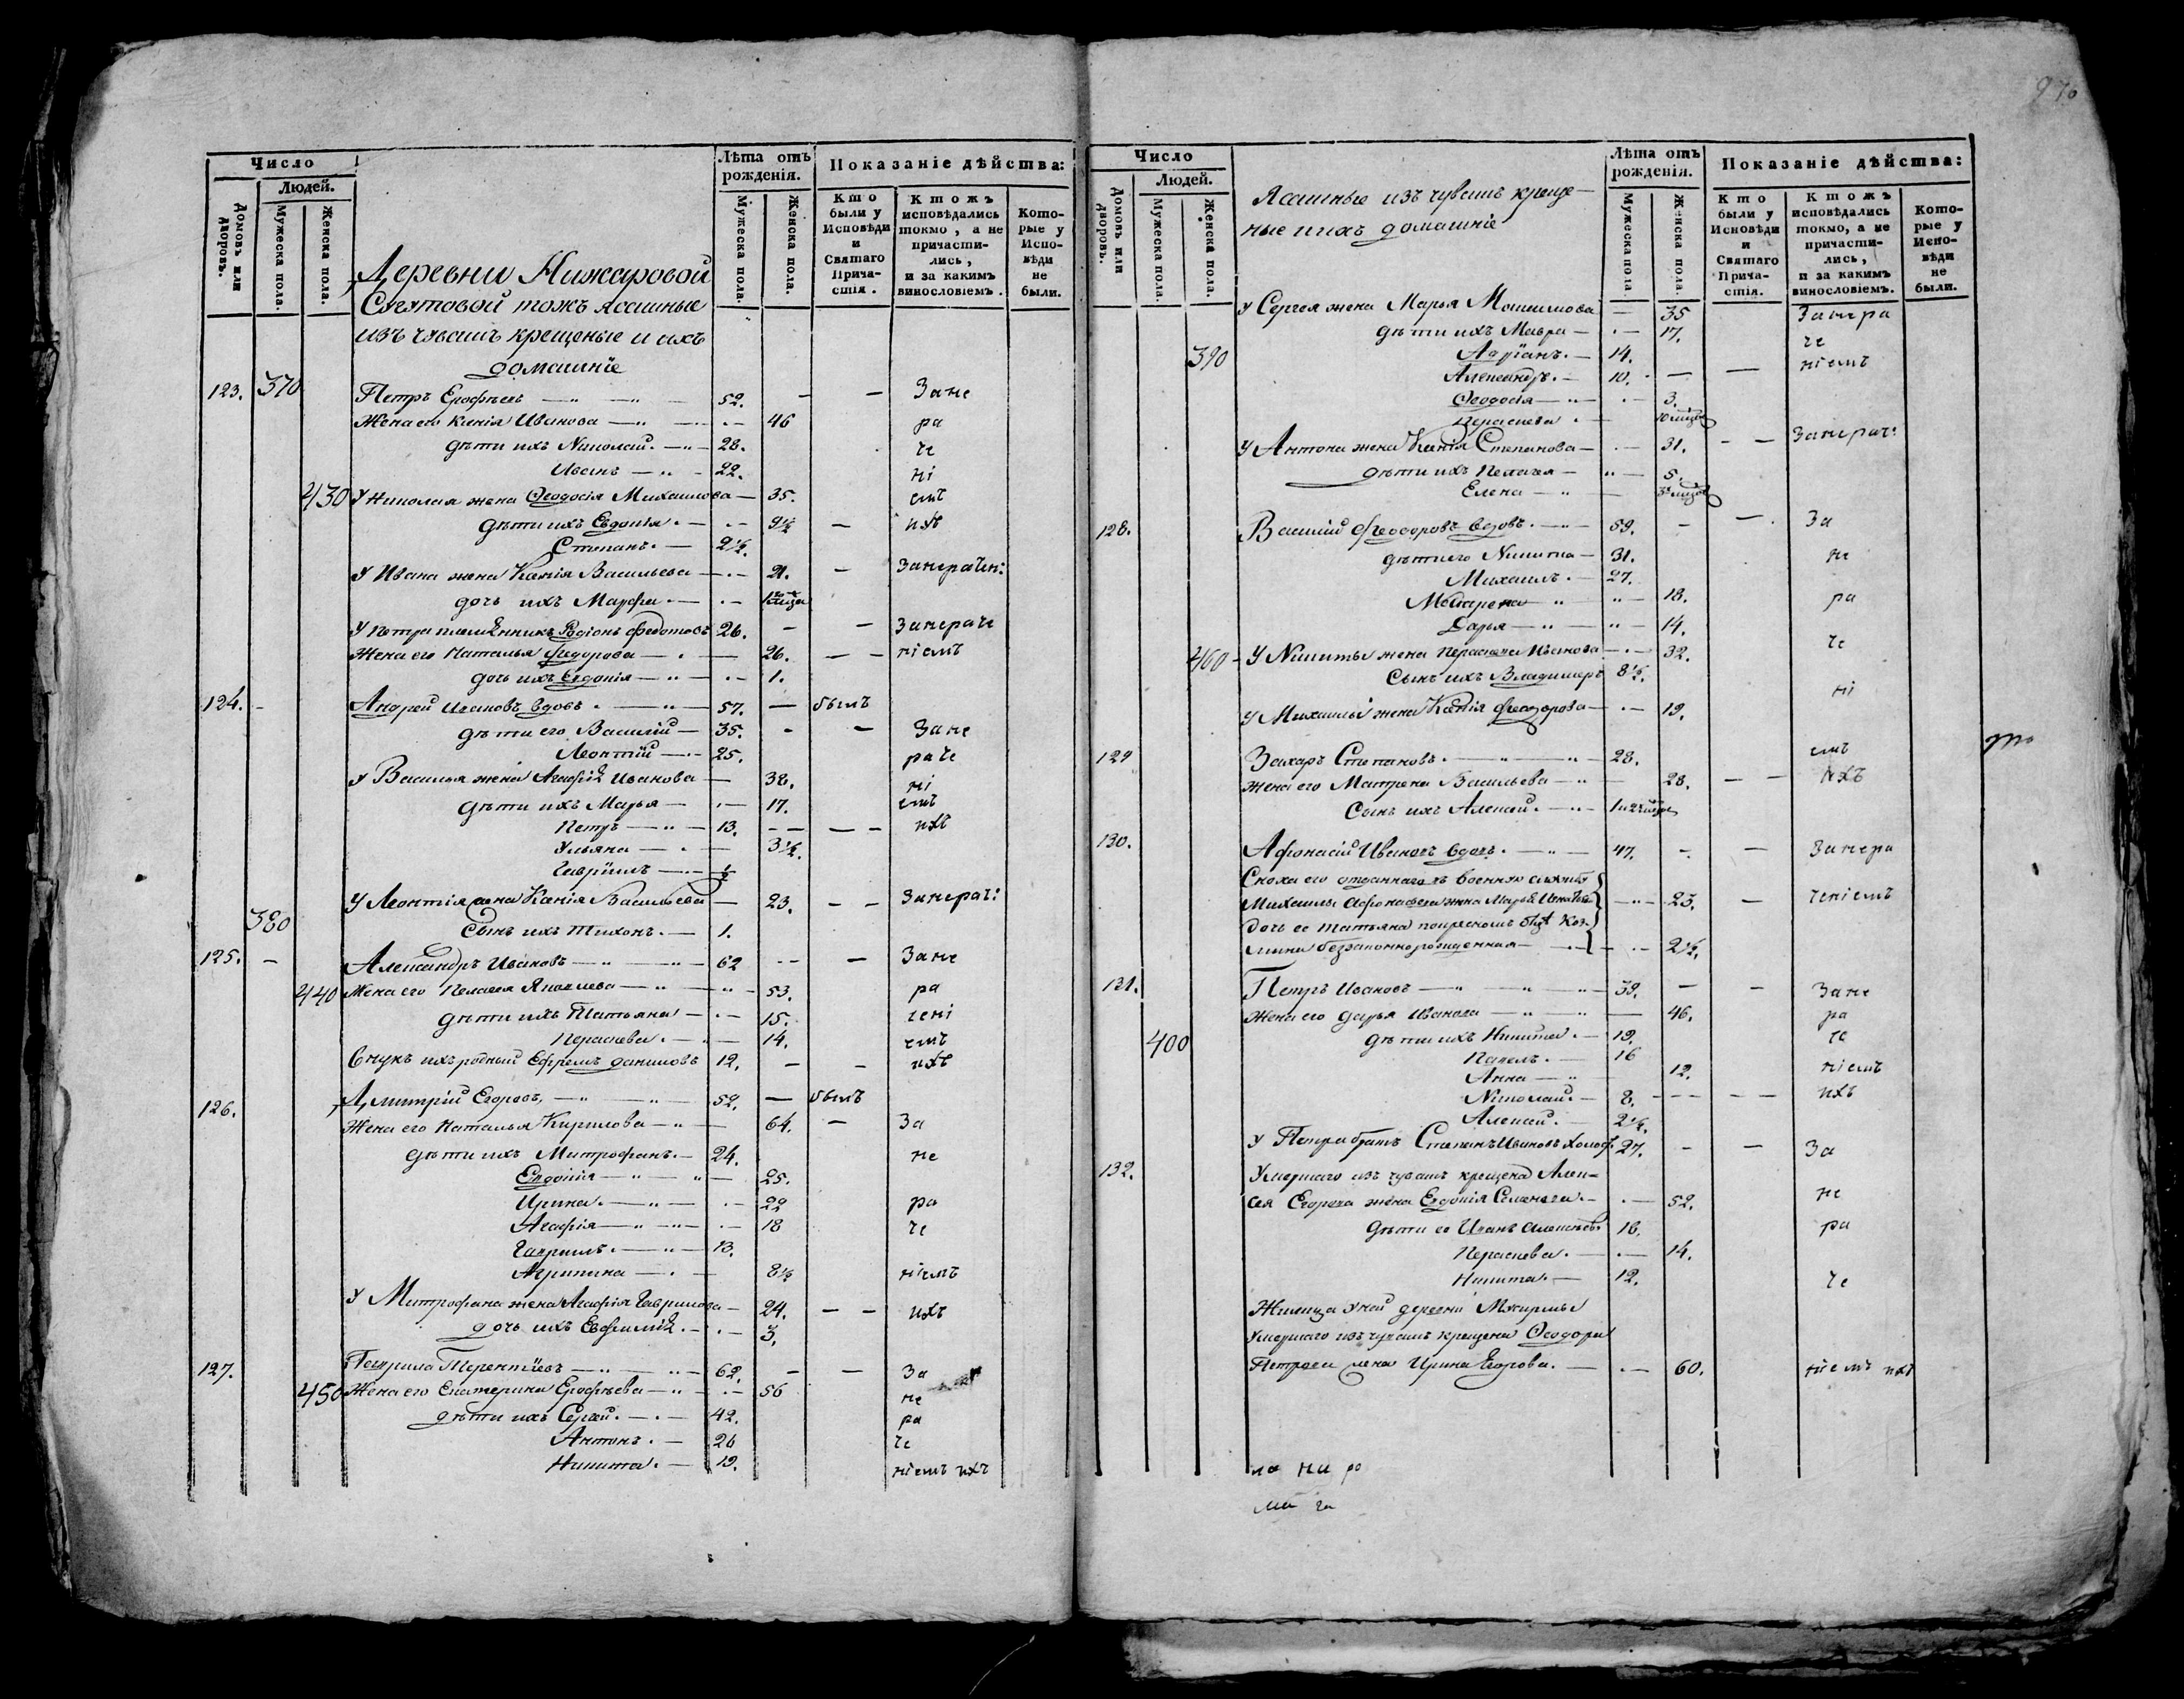 Число
Людей.
Домовъ или дворовъ.
Мужеска пола.
Женска пола.
Лѣта отъ рожденія.
Мужеска пола.
Женска пола.
Показаніе дѣйства:
Кто были у Исповѣди и Святаго Причастія.
Ктожъ исповѣдались токмо, а не причастились, и за какимъ винословіемъ.
Которые у Исповѣди не были.
Деревни Нижаровой
тожъ ясашные
изъ чувашъ крещеные и ихъ
домашніе
123. 370 Петръ Ерофѣевъ 52. За не
Жена его Ксенія Иванова 46 ра
дѣти ихъ Николай. 28. че
Иванъ 22. ні
430 У Николая жена Ѳеодосія Михаилова 35. емъ
дѣти ихъ Евдокія. 9½ ихъ
Степанъ. 2½.
У Ивана жена Ксенія Васильева 21. За нерачен:
дочь ихъ Марфа.
У Петра племянникъ Родіонъ Федотовъ 26. За нераче
Жена его Наталья Федорова 26. ніемъ
дочь ихъ Евдокія 1.
124. Андрей Ивановъ вдовъ 57. былъ
дѣти его Василій 35. За не
Леонтій 25. раче
У Василья жена Агафія Иванова 38. ні
дѣти ихъ Марья 17. емъ
Петръ 13. ихъ
Ульяна 3½.
Гавріилъ ½
У Леонтія жена Ксенія Васильева 23. За нерач:
380 Сынъ ихъ Тихонъ. 1.
125. Александръ Ивановъ 62 За не
440 Жена его Пелагея 53. ра
дѣти ихъ Татьяна 15. чені
Параскева. 14. емъ
Внукъ ихъ родный Ефремъ Даниловъ 12. ихъ
126. Дмитрій Егоровъ 52. былъ
Жена его Наталья Кирилова 64. За
дѣти ихъ Митрофанъ. 24. не
Евдокія 25.
Ирина. 22 ра
Агафія 18 че
Гаврилъ. 13.
Агрипина 8½ ніемъ
У Митрофана жена Агафія Гаврилова 24. ихъ
дочь ихъ Евфимія. 3.
127. Гаврила Терентіевъ 62. За
450 Жена его Екатерина Ерофѣева 56 не
дѣти ихъ Сергѣй. 42. ра
Антонъ. 26 че
Никита. 19. ніемъ ихъ
Число
Людей.
Домовъ или дворовъ.
Мужеска пола.
Женска пола.
Ясашные изъ чувашъ креще
ные и ихъ домашніе
Лѣта отъ рожденія.
Мужеска пола.
Женска пола.
Показаніе дѣйства:
Кто были у Исповѣди и Святаго Причастія.
Ктожъ исповѣдались токмо, а не причастились, и за какимъ винословіемъ.
Которые у Исповѣди не были.
У Сергея жена Марья 35 За нера
дѣти ихъ Мавра 17. че
390 Адріанъ. 14. ніемъ
Александръ. 10.
Ѳеодосія 3.
Параскева.
У Антона жена Ксенія Степанова 31. За нерач:
дѣти ихъ Пелагея 5.
Елена
128. Василій Феодоровъ вдовъ. 59. За
дѣти его Никита 31. не
Михаилъ. 27.
18. ра
Дарья 14.
460 У Никиты жена Параскева Иванова 32. че
Сынъ ихъ Владимеръ 8½.
У Михаилы жена Ксенія Феодорова 19. ні
129 Захаръ Степановъ. 28. емъ
жена его Матрена Васильева 28. ихъ
Сынъ ихъ Алексѣй.
130. Афонасій Ивановъ вдовъ. 47. За нера
Сноха его отданнаго въ военную службу
Михаилы Афонасьева жена Марья 23. ченіемъ
дочь ее Татьяна
незаконнорожденная 2½.
131. Петръ Ивановъ 39. За не
жена его Дарья Иванова 46. ра
400 дѣти ихъ Никита. 19. че
Павелъ. 16
Анна 12. ніемъ
Николай. 8. ихъ
Алексѣй. 2½.
У Петра братъ Степанъ Ивановъ холос. 27. За
132. Умершаго изъ чувашъ крещена Алек-
сея Егорова жена Евдокія 52. не
дѣти ее Иванъ Алексѣевъ 16. ра
Параскева. 14.
Никита. 12. че
деревни
Умершаго изъ чувашъ крещена Ѳеодора
Петрова жена Ирина Егорова. 60. ніемъ ихъ